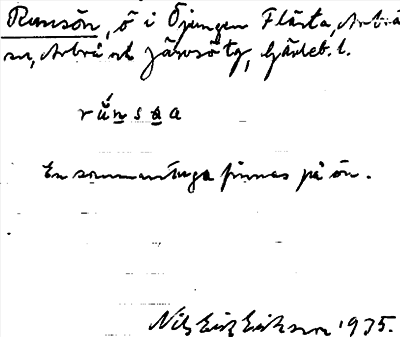 Runsön, ö i Öjungen Flästa, Arbrå
sn, Arbrå o Järvsö tg, Gävleb. l.
rúnsöa
En sommarstuga finnes på ön.
Nils Erik Eriksson 1935.